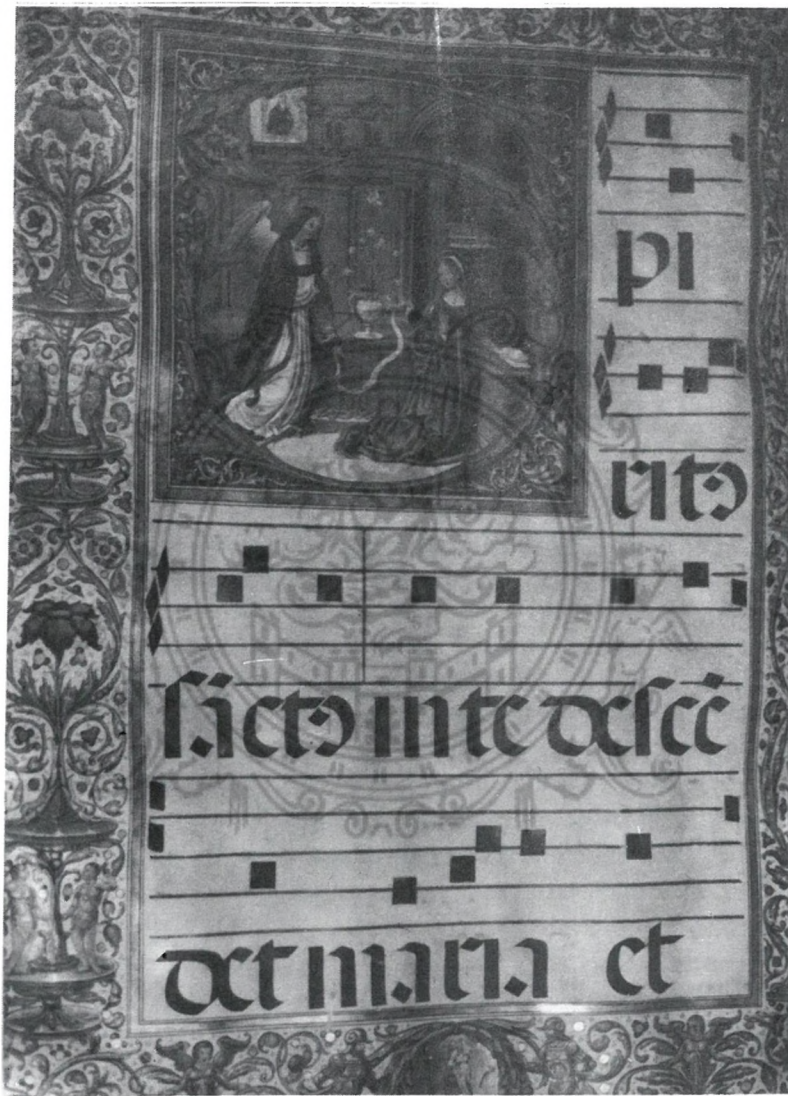 pi
rito
sācto in te descē
det maria et